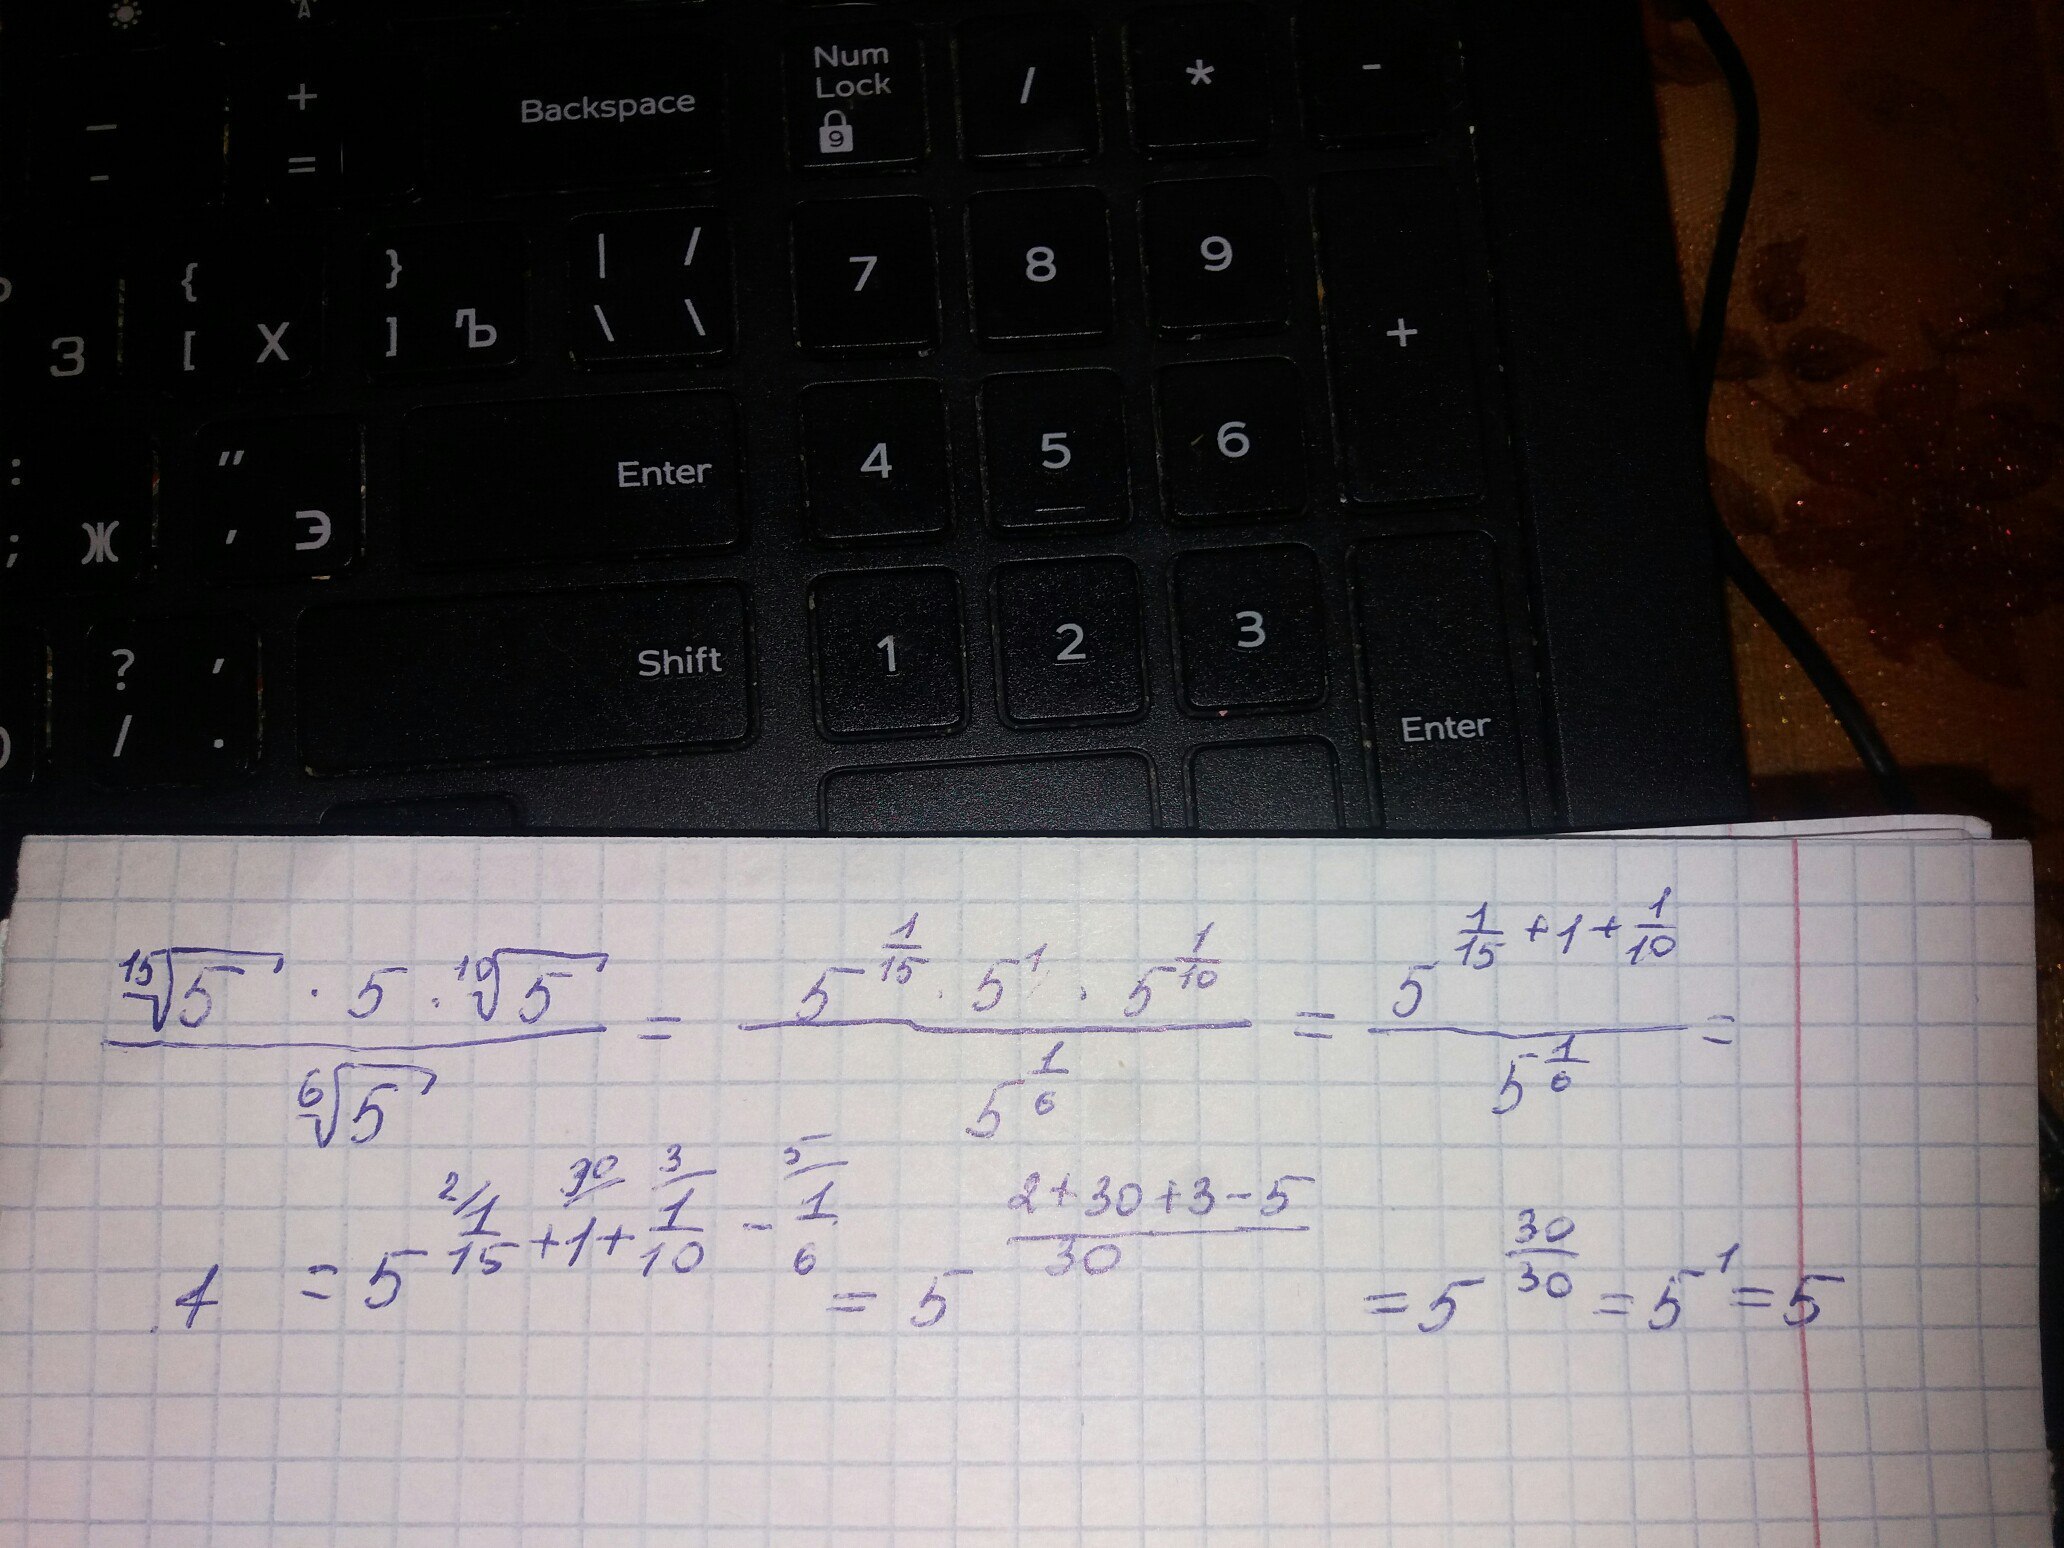 + Backspace Num Lock 9 / * -
- - =
{ } | / 7 8 9 +
З [ Х ] Ъ \ \
: " Enter 4 5 6
; Ж ' Э
? , Shift 1 2 3 Enter
/ .
¹⁵√5 · 5 · ¹⁰√5 / ⁶√5 = 5^(1/15) · 5^1 · 5^(1/10) / 5^(1/6) = 5^(1/15 + 1 + 1/10) / 5^(1/6) =
2/ 30 3 5
= 5^(1/15 + 1 + 1/10 - 1/6) = 5^((2+30+3-5)/30) = 5^(30/30) = 5^1 = 5